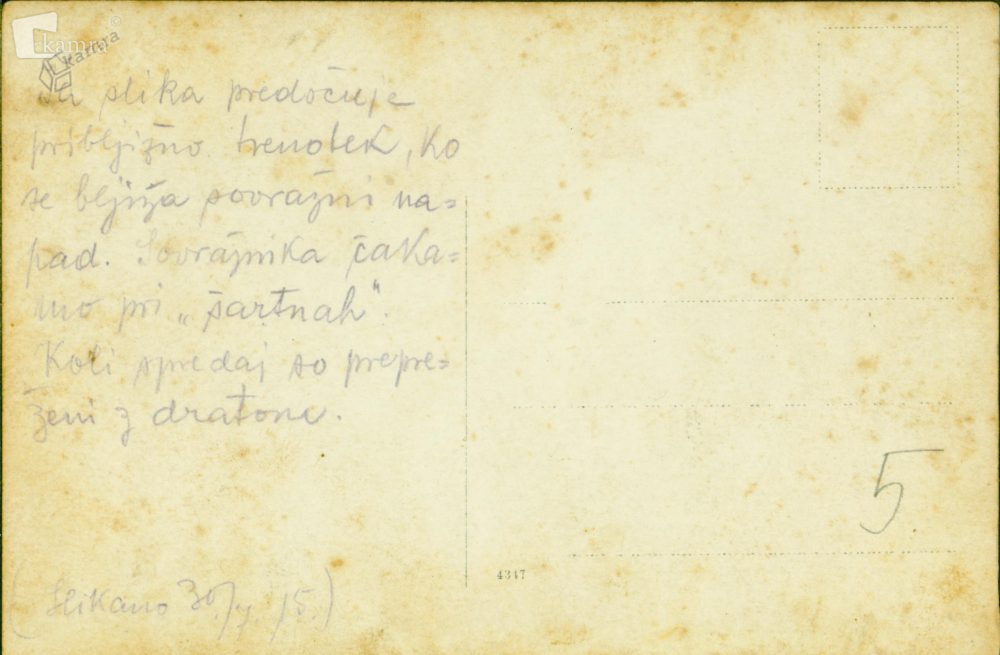 kamra
kamra
Ta slika predočuje
približno trenotek, ko
se bljiža sovražni na=
pad. Sovražnika čaka=
mo pri „šartnah".
Koli spredaj so prepre=
ženi z dratom.
5
4347
(Slikano 30./ 15.)